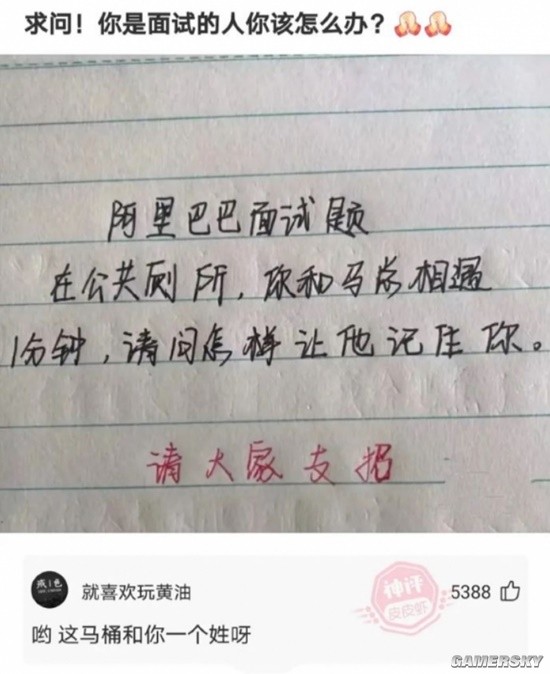 求问！你是面试的人你该怎么办？
阿里巴巴面试题
在公共厕所，你和马总相遇
1分钟，请问怎样让他记住你。
请大家支招
就喜欢玩黄油
神评
皮皮虾
5388
哟 这马桶和你一个姓呀
GAMERSKY